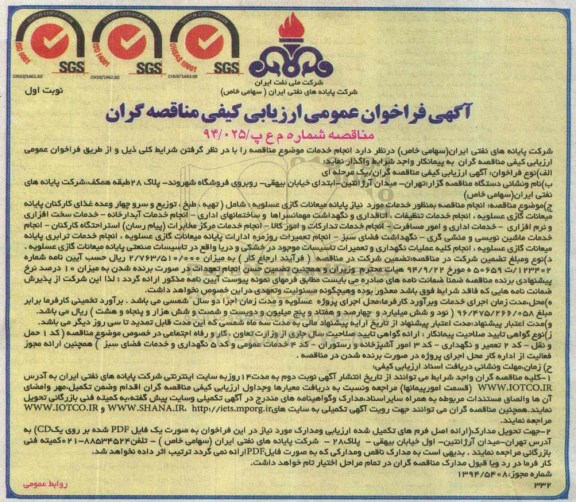 شرکت ملی نفت ایران
شرکت پایانه های نفتی ایران ( سهامی خاص )
نوبت اول
SGS SGS SGS
آگهی فراخوان عمومی ارزیابی کیفی مناقصه گران
مناقصه شماره م ع پ/۹۴/۰۲۵
شرکت پایانه های نفتی ایران(سهامی خاص) درنظر دارد انجام خدمات موضوع مناقصه را با در نظر گرفتن شرایط کلی ذیل و از طریق فراخوان عمومی
ارزیابی کیفی مناقصه گران به پیمانکار واجد شرایط واگذار نماید:
الف)نوع فراخوان: آگهی ارزیابی کیفی مناقصه گران/یک مرحله ای
ب)نام ونشانی دستگاه مناقصه گزار:تهران- میدان آرژانتین-ابتدای خیابان بیهقی- روبروی فروشگاه شهروند- پلاک ۲۸طبقه همکف-شرکت پایانه های
نفتی ایران(سهامی خاص)
ج)موضوع مناقصه: انجام مناقصه بمنظور خدمات مورد نیاز پایانه میعانات گازی عسلویه ، شامل ( تهیه ، طبخ ، توزیع و سرو چهار وعده غذای کارکنان پایانه
میعانات گازی عسلویه ، انجام خدمات تنظیفات ، اتاقداری و نگهداشت مهمانسراها و ساختمانهای اداری - انجام خدمات آبدارخانه - خدمات سخت افزاری
و نرم افزاری - خدمات اداری و امور مسافرت - انجام خدمات تدارکات و امور کالا - انجام خدمات مرکز مخابرات (پیام رسان) استراحتگاه کارکنان - انجام
خدمات ماشین نویسی و منشی گری - نگهداشت فضای سبز - انجام تعمیرات روزمره ادارات پایانه میعانات گازی عسلویه ، انجام خدمات ترابری پایانه
میعانات گازی عسلویه ، انجام کلیه عملیات نگهداری و تعمیرات تاسیسات موجود در خشکی و دریا واقع در تاسیسات صنعتی پایانه میعانات گازی عسلویه .
د)نوع ومبلغ تضمین شرکت در مناقصه:تضمین شرکت در مناقصه ( فرآیند ارجاع کار ) به میزان ۲/۷۶۴/۵۱۰/۰۰۰ ریال حسب آیین نامه شماره
۱۲۳۴۰۲/ت ۵۰۶۵۹ ه مورخ ۹۴/۹/۲۲ هیات محترم وزیران و همچنین تضمین حسن انجام تعهدات در صورت برنده شدن به میزان ۱۰ درصد نرخ
پیشنهادی برنده مناقصه ضمنا ضمانت نامه های صادره می بایست مطابق فرمهای نمونه پیوست آیین نامه مذکور ارائه گردد ؛ لذا این شرکت از پذیرش
ضمانت نامه هایی که فاقد شرایط فوق باشد معذور بوده وهیچگونه مسئولیت وتعهدی دراین خصوص نخواهد داشت.
ه)محل،مدت زمان اجرای خدمات وبرآورد کارفرما:محل اجرای پروژه عسلویه و مدت زمان اجرا دو سال شمسی می باشد . برآورد تخمینی کارفرما برابر
مبلغ ۹۶/۴۷۵/۲۶۶/۰۵۸ ( نود و شش میلیارد و چهارصد و هفتاد و پنج میلیون و دویست و شصت و شش هزار و پنجاه و هشت ) ریال می باشد.
و)مدت اعتبار پیشنهاد:مدت اعتبار پیشنهاد از تاریخ ارایه پیشنهاد مالی به مدت سه ماه شمسی که این مدت قابل تمدید تا سی روز دیگر می باشد.
ز)نوع گواهی تایید صلاحیت پیمانکار : ارائه گواهی تایید صلاحیت سال جاری از وزارت تعاون ،کار و رفاه اجتماعی در خصوص موضوع مناقصه ( کد ۱ حمل
و نقل - کد ۲ تعمیر و نگهداری - کد ۳ امور آشپزخانه و رستوران - کد ۴ خدمات عمومی و کد ۵ نگهداری و خدمات فضای سبز ) همچنین ارائه مجوز
فعالیت از اداره کار محل اجرای پروژه در صورت برنده شدن در مناقصه .
ح)زمان،مهلت ونشانی دریافت اسناد ارزیابی کیفی:
۱-کلیه مناقصه گران واجد شرایط می توانند از تاریخ انتشار آگهی نوبت دوم به مدت۱۴روزبه سایت اینترنتی شرکت پایانه های نفتی ایران به آدرس
WWW.IOTCO.IR (قسمت امورپیمانها) مراجعه ونسبت به دریافت معیارها وجداول ارزیابی کیفی مناقصه گران اقدام وضمن تکمیل،مهر وامضای
آن ها والصاق مستندات مربوطه به همراه سایراسناد،مدارک وگواهینامه های مندرج در آگهی تکمیلی وسایت پیش گفته،به کمیته فنی بازرگانی تحویل
نمایند.همچنین مناقصه گران می توانند جهت رویت آگهی تکمیلی به سایت های http://iets.mporg.ir ،WWW.SHANA.IR و WWW.IOTCO.IR
مراجعه نمایند.
۲-جهت تحویل مدارک(ارائه اصل فرم های تکمیل شده ارزیابی ومدارک مورد نیاز در این فراخوان به صورت یک فایل PDF شده بر روی یکCD) به
آدرس تهران-میدان آرژانتین- اول خیابان بیهقی - پلاک۲۸ - شرکت پایانه های نفتی ایران (سهامی خاص ) - تلفن۸۸۵۳۴۵۲۴-۰۲۱کمیته فنی
بازرگانی مراجعه نمایند . بدیهی است به مدارک ناقص ومدارکی که به صورت فایلPDFارائه نمی گردد ترتیب اثر داده نخواهد شد.
کار فرما در رد ویا قبول مدارک مناقصه گران در تمام مراحل اختیار تام خواهد داشت.
شماره مجوز:۱۳۹۴/۵۴۰۸
۳۳۲
روابط عمومی